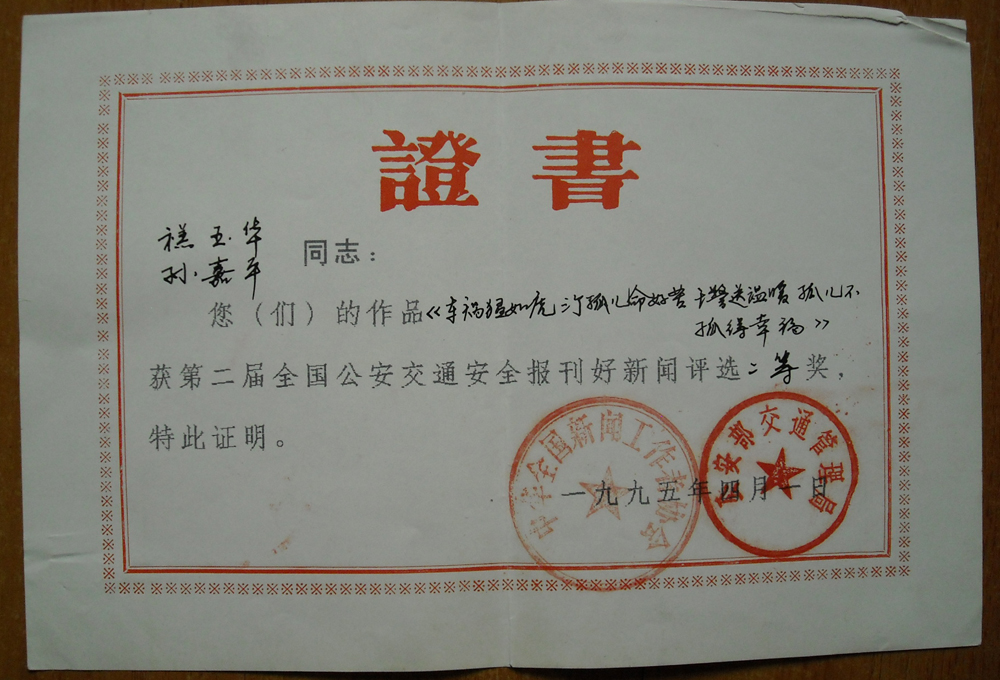 證書
禚玉华
孙嘉平
同志：
您（们）的作品《车祸猛如虎 三个孤儿命好苦 干警送温暖 孤儿不
孤得幸福》
获第二届全国公安交通安全报刊好新闻评选二等奖，
特此证明。
中华全国新闻工作者协会
公安部交通管理局
一九九五年四月一日